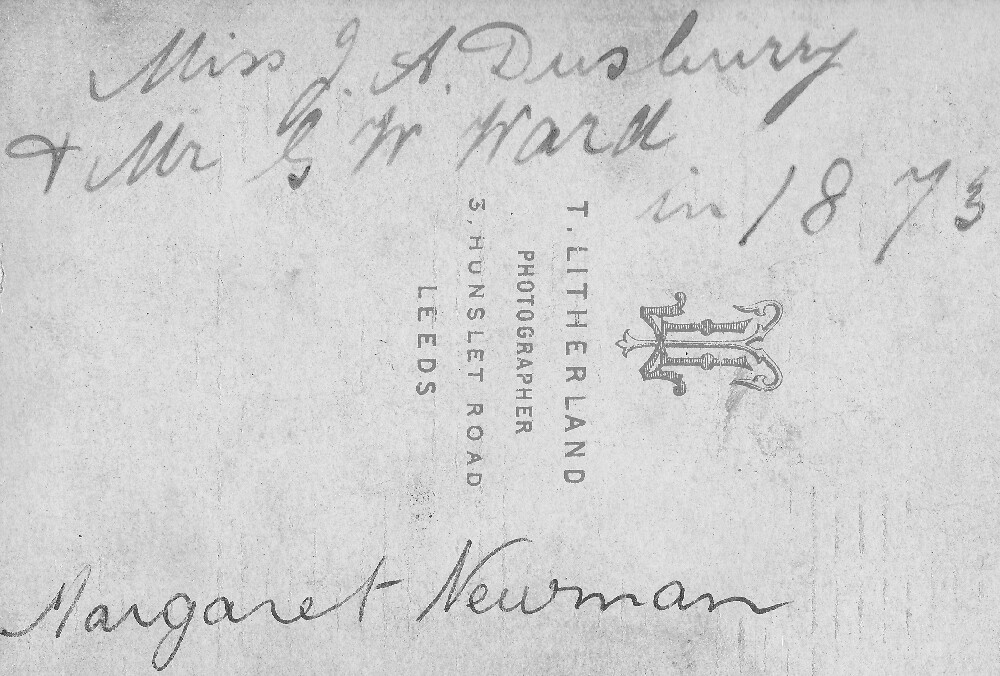 Miss J. A. Dusburry
& Mr G W Ward
in 1873
T. LITHERLAND
PHOTOGRAPHER
3, HUNSLET ROAD
LEEDS
Margaret Newman